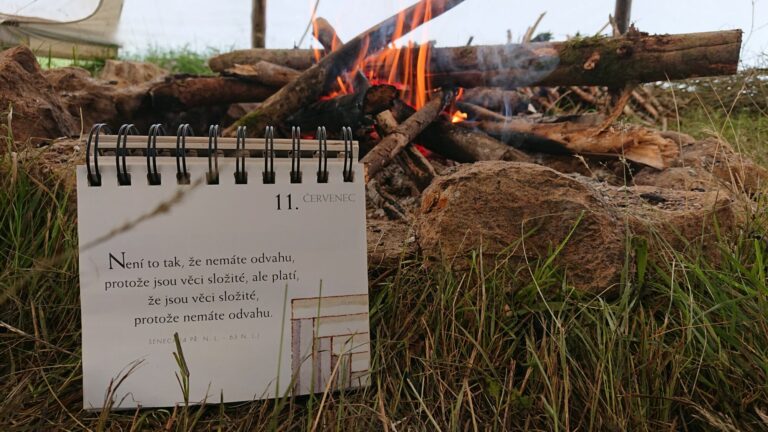 11. ČERVENEC
Není to tak, že nemáte odvahu,
protože jsou věci složité, ale platí,
že jsou věci složité,
protože nemáte odvahu.
SENECA (4 PŘ. N. L. – 65 N. L.)